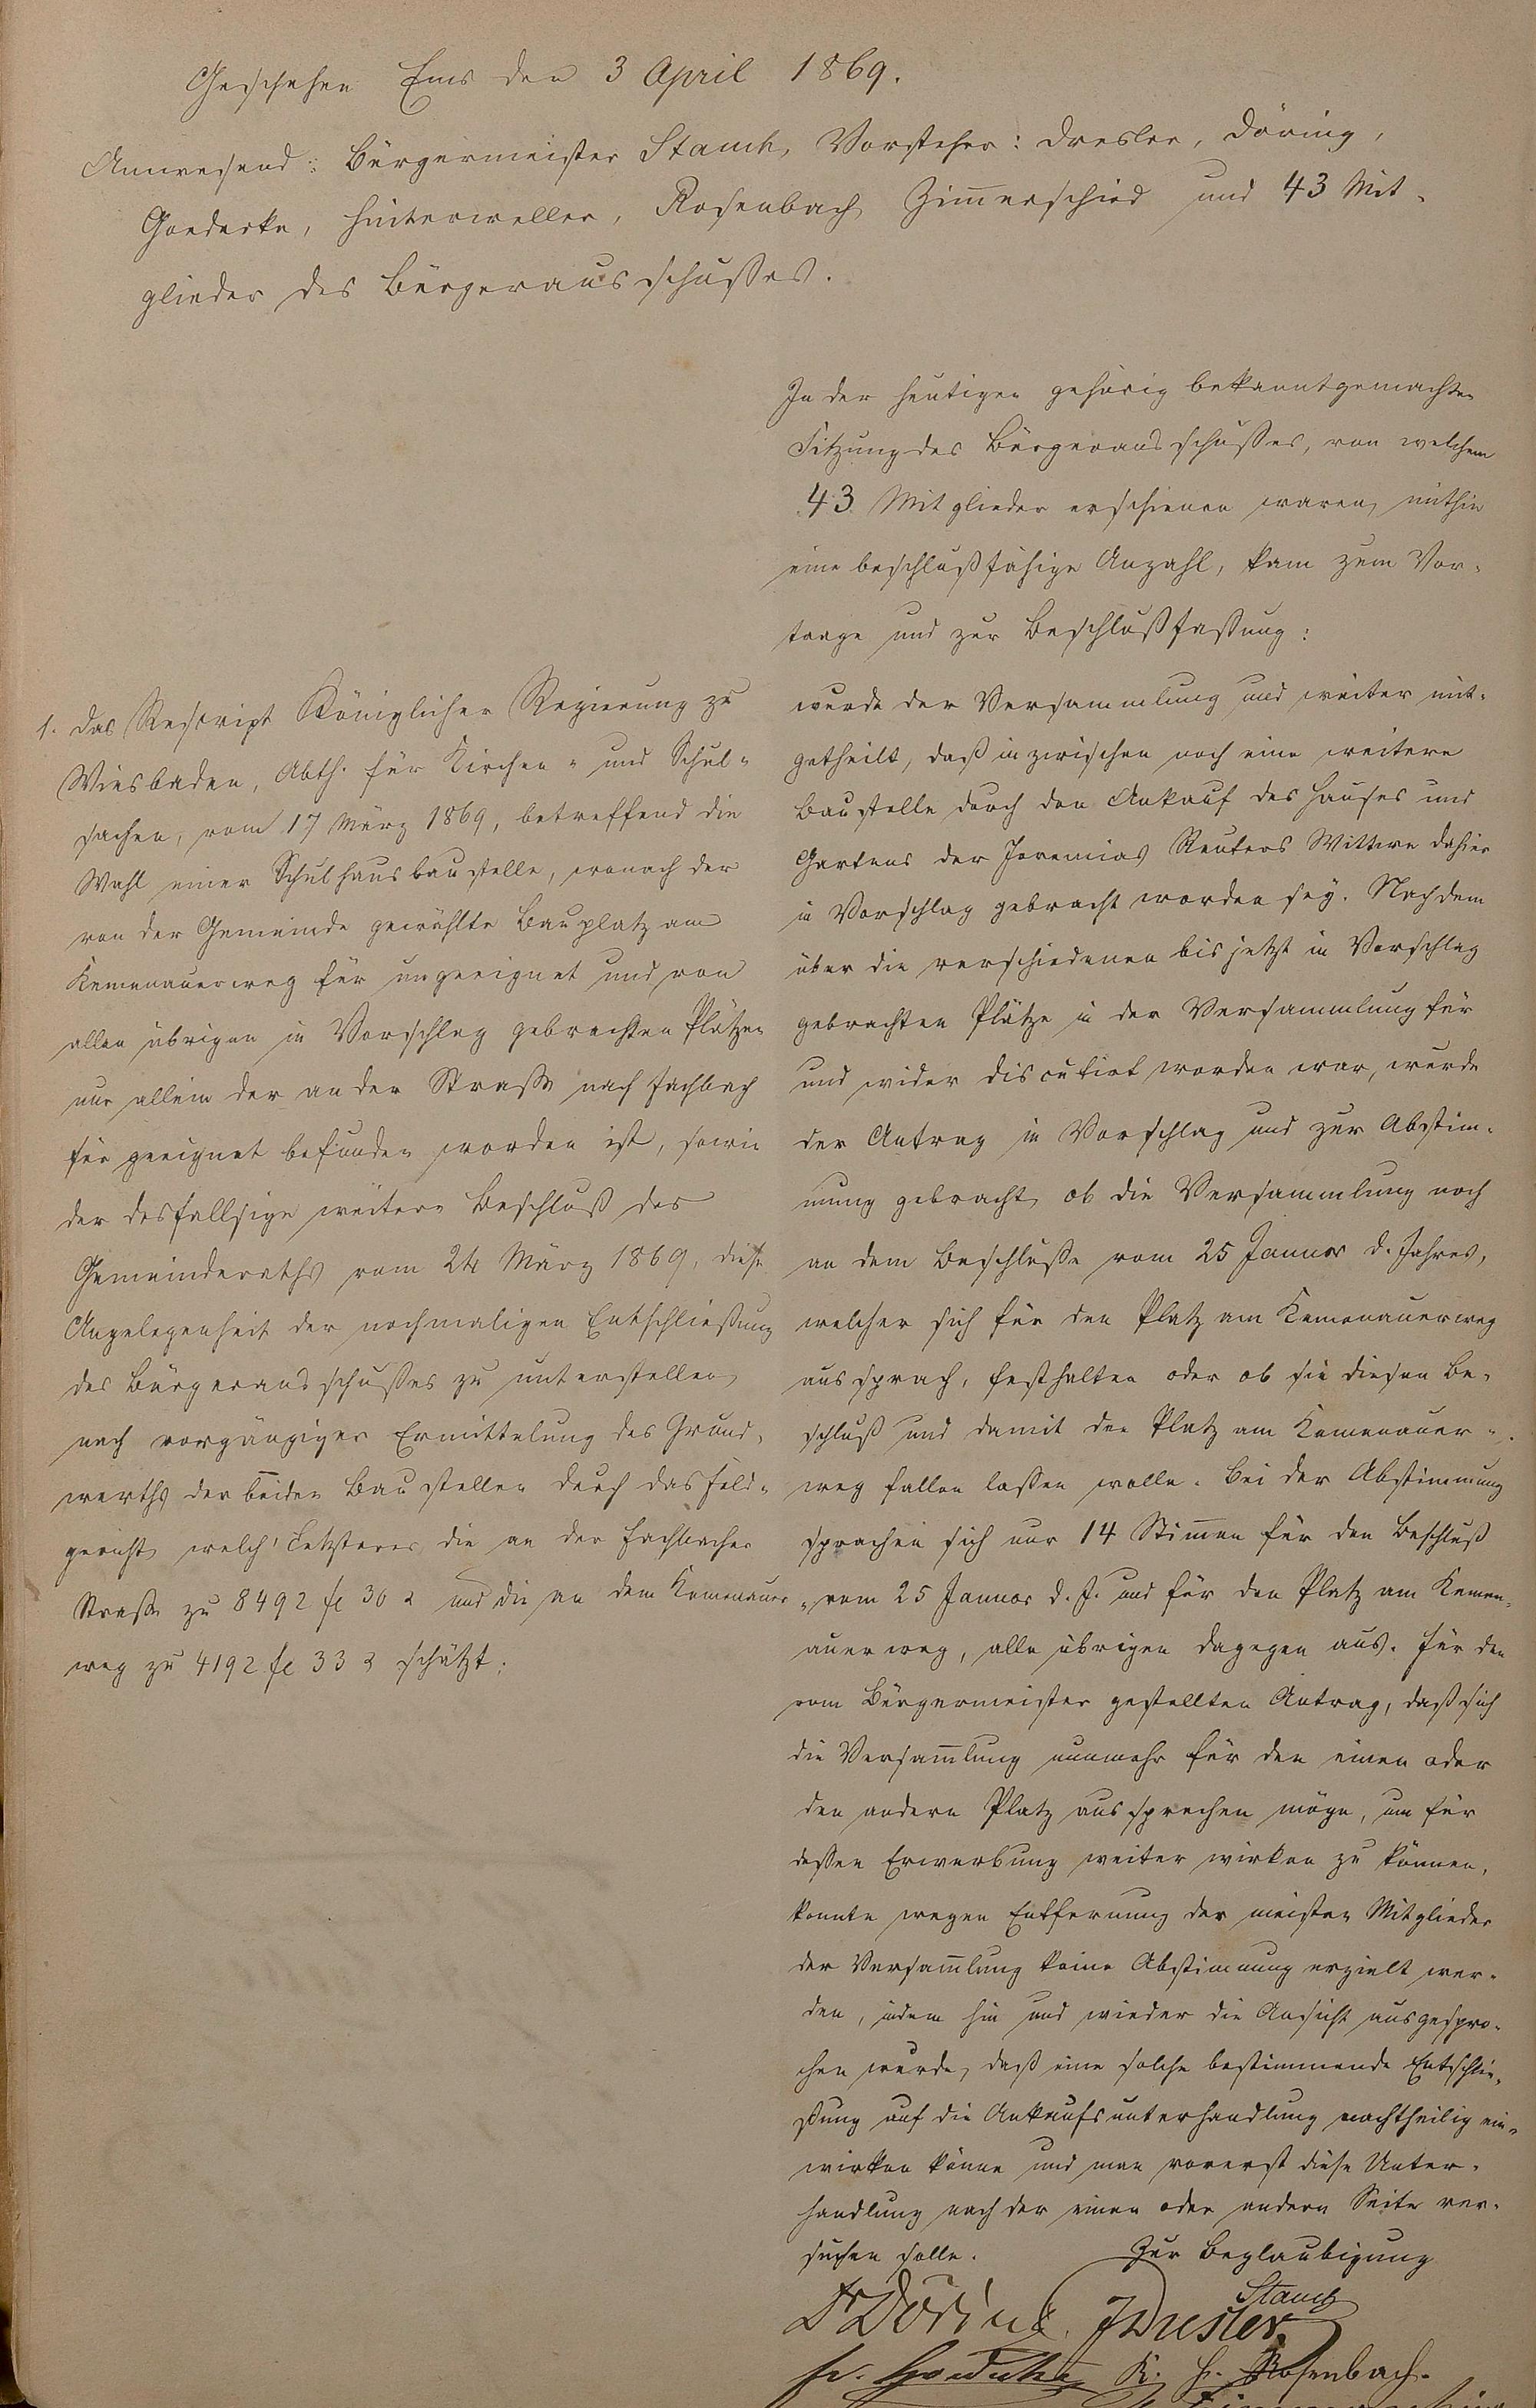 Geschehen Ems den 3 April 1869.
Anwesend: Bürgermeister Stauch, Vorsteher: Dresler, Döring,
Goedecke, Hinterweller, Rosenbach Zim̅erschied und 43 Mit-
glieder des Bürgerausschußes.
In der heutigen gehörig bekanntgemachten
Sitzung des Bürgerausschußes, von welchem
43 Mitglieder erschienen waren, mithin
eine beschlußfähige Anzahl, kam zum Vor-
trage und zur Beschlußfaßung:
1. Das Rescript Königlicher Regierung zu
Wiesbaden, Abth. für Kirchen- und Schul-
sachen, vom 17 März 1869, betreffend die
Wahl einer Schulhausbaustelle, wonach der
von der Gemeinde gewählte Bauplatz am
Kemenauerweg für ungeeignet und von
allen übrigen in Vorschlag gebrachten Plätzen
nur allein der an der Straße nach Fachbach
für geeignet befunden worden ist, sowie
der desfallsige weitere Beschluß des
Gemeinderaths vom 24 März 1869, diese
Angelegenheit der nochmaligen Entschließung
des Bürgerausschußes zu unterstellen,
nach vorgängiger Ermittelung des Grund-
werths der beiden Baustellen durch das Feld-
gericht, welch' Letzterer die an der Fachbacher
Straße zu 8492 fl 30 x und die an dem Kemenauer-
weg zu 4192 fl 33 x schätzt;
wurde der Versammlung und weiter mit-
getheilt, daß inzwischen noch eine weitere
Baustelle durch den Ankauf des Hauses und
Gartens der Jeremias Reuters Wittwe dahier
in Vorschlag gebracht worden sey. Nachdem
über die verschiedenen bis jetzt in Vorschlag
gebrachten Plätze in der Versammlung für
und wider discutirt worden war, wurde
der Antrag in Vorschlag und zur Abstim-
mung gebracht, ob die Versammlung noch
an dem Beschluße vom 25 Januar d. Jahres,
welcher sich für den Platz am Kemenauerweg
aussprach, festhalten oder ob sie diesen Be-
schluß und damit den Platz am Kemenauer-
weg fallen laßen wolle. Bei der Abstimmung
sprachen sich nur 14 Stim̅en für den Beschluß
vom 25 Januar d. J. und für den Platz am Kemen-
auerweg, alle übrigen dagegen aus. Für den
vom Bürgermeister gestellten Antrag, daß sich
die Versam̅lung nunmehr für den einen oder
den andern Platz aussprechen möge, um für
deßen Erwerbung weiter wirken zu können,
konnte wegen Entfernung der meisten Mitglieder
der Versam̅lung keine Abstimmung erzielt wer-
den, indem hin und wieder die Ansicht ausgespro-
chen wurde, daß eine solche bestimmende Entschlie-
ßung auf die Ankaufsunterhandlung nachtheilig ein-
wirken könne und man vorerst diese Unter-
handlung nach der einen oder andern Seite ver-
suchen solle. Zur Beglaubigung
Stauch
Dr Döring. J Dresler.
Fr. Goedecke K. H. Rosenbach.